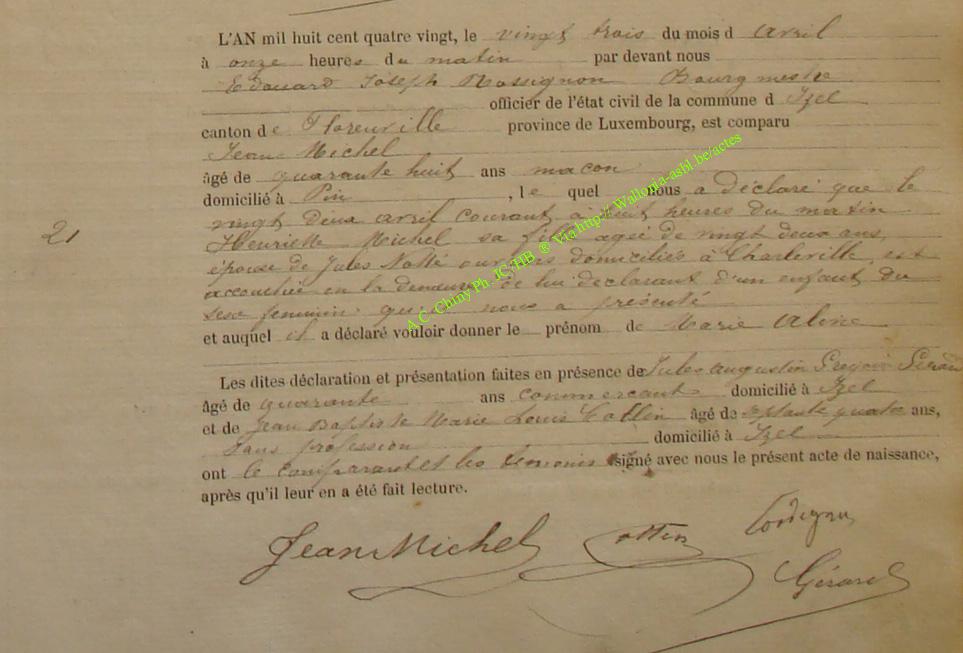 L'AN mil huit cent quatre vingt, le vingt trois du mois d avril
à onze heures du matin par devant nous
Edouard Joseph Rossignon Bourgmestre
officier de l'état civil de la commune d Izel
canton de Florenville province de Luxembourg, est comparu
Jean Michel
âgé de quarante huit ans maçon
domicilié à Pin , le quel nous a déclaré que le
21
vingt deux avril courant à huit heures du matin
Henriette Michel sa fille agée de vingt deux ans,
épouse de Jules Notté ouvriers domiciliés à Charleville, est
accouchée en la demeure de lui déclarant d'un enfant du
sexe feminin qu'il nous a présenté
et auquel il a déclaré vouloir donner le prénom de Marie Aline
Les dites déclaration et présentation faites en présence de Jules Augustin Gérard
âgé de quarante ans commercant domicilié à Izel
et de Jean Baptiste Marie Louis Collin âgé de septante quatre ans,
sans profession domicilié à Izel
ont le comparant et les témoins signé avec nous le présent acte de naissance,
après qu'il leur en a été fait lecture.
Jean Michel
Gérard
A.C. Chiny Ph. JC. HB ® Via http:// Wallonia-asbl.be/actes